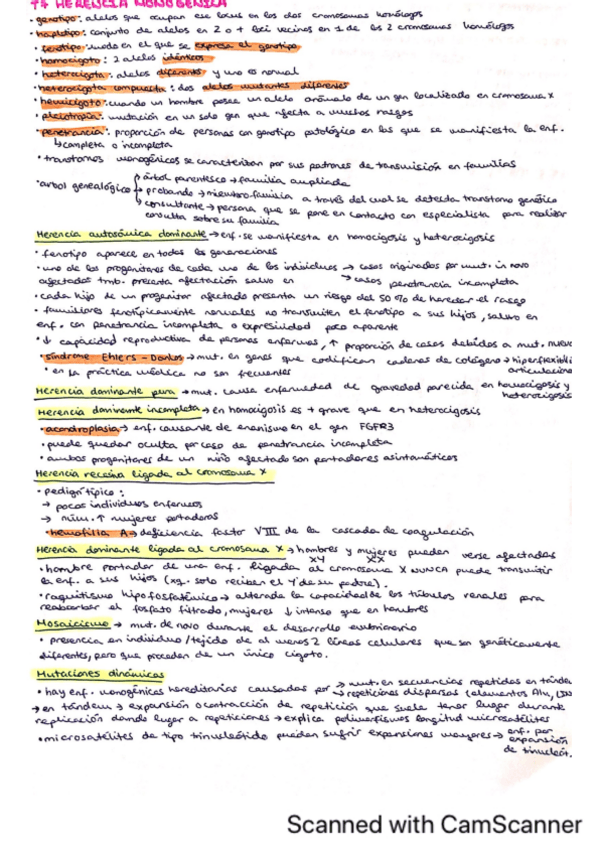 T7 HERENCIA MONOGÉNICA
· genotipo: alelos que ocupan ese locus en los dos cromosomas homólogos
· haplotipo: conjunto de alelos en 2 o + loci vecinos en 1 de los 2 cromosomas homólogos
· fenotipo: modo en el que se expresa el genotipo
· homocigoto: 2 alelos idénticos
· heterocigota: alelos diferentes y uno es normal
· heterocigota compuesta: dos alelos mutantes diferentes
· hemicigoto: cuando un hombre posee un alelo anómalo de un gen localizado en cromosoma X
· pleiotropía: mutación en un solo gen que afecta a muchos rasgos
· penetrancia: proporción de personas con genotipo patológico en las que se manifiesta la enf.
↳ completa o incompleta
· trastornos monogénicos se caracterizan por sus patrones de transmisión en familias
· arbol genealógico → árbol parentesco → familia ampliada
→ probando → miembro familia a través del cual se detecta transtorno genético
→ consultante → persona que se pone en contacto con especialista para realizar
consulta sobre su familia
Herencia autosómica dominante → enf. se manifiesta en homocigosis y heterocigosis
· fenotipo aparece en todas las generaciones
· uno de los progenitores de cada uno de los individuos → casos originados por mut. in novo
afectados tmb. presenta afectación salvo en → casos penetrancia incompleta
· cada hijo de un progenitor afectado presenta un riesgo del 50% de heredar el rasgo
· familiares fenotípicamente normales no transmiten el fenotipo a sus hijos, salvo en
enf. con penetrancia incompleta o expresividad poco aparente
· ↓ capacidad reproductiva de personas enfermas, ↑ proporción de casos debidos a mut. nueva
· síndrome Ehlers-Danlos → mut. en genes que codifican cadenas de colágeno → hiperflexibili
articulacione
· en la práctica médica no son frecuentes
Herencia dominante pura → mut. causa enfermedad de gravedad parecida en homocigosis y
heterocigosis
Herencia dominante incompleta → en homocigosis es + grave que en heterocigosis
· acondroplasia → enf. causante de enanismo en el gen FGFR3
· puede quedar oculta por caso de penetrancia incompleta
· ambos progenitores de un niño afectado son portadores asintomáticos
Herencia recesiva ligada al cromosoma X
· pedigrí típico:
→ pocos individuos enfermos
→ núm. ↑ mujeres portadoras
· hemofilia A → deficiencia factor VIII de la cascada de coagulación
Herencia dominante ligada al cromosoma X → hombres y mujeres pueden verse afectadas
XY XX
· hombre portador de una enf. ligada al cromosoma X NUNCA puede transmitir
la enf. a sus hijos (xq. solo reciben el Y de su padre).
· raquitismo hipofosfatémico → alterada la capacidad de los túbulos renales para
reabsorber el fosfato filtrado, mujeres ↓ intenso que en hombres
Mosaicismo → mut. de novo durante el desarrollo embrionario
· presencia en individuo/tejido de al menos 2 líneas celulares que son genéticamente
diferentes, pero que proceden de un único cigoto.
Mutaciones dinámicas
· hay enf. monogénicas hereditarias causadas por → mut. en secuencias repetidas en tánde
→ repeticiones dispersas (elementos Alu,
→ en tándem → expansión o contracción de repetición que suele tener lugar durante
replicación dando lugar a repeticiones → explica polimorfismos longitud microsatélites
· microsatélites de tipo trinucleótido pueden sufrir expansiones mayores → enf. por
expansión
de trinucleót.
Scanned with CamScanner